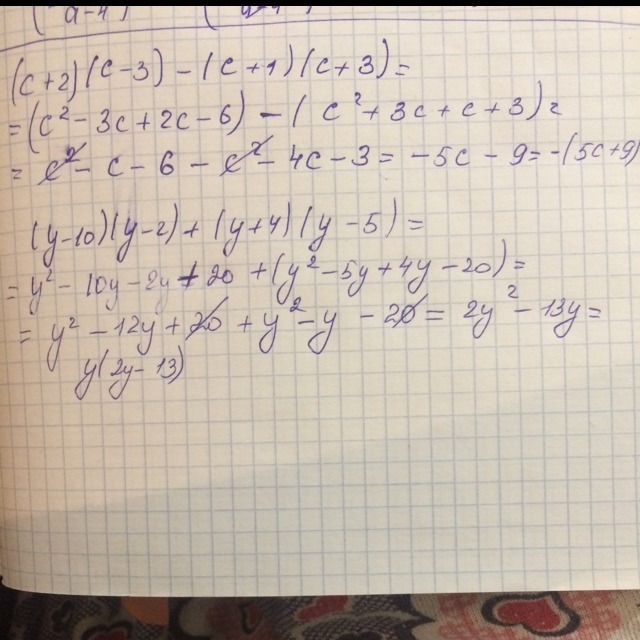 (c+2)(c-3) - (c+1)(c+3) =
= (c² - 3c + 2c - 6) - (c² + 3c + c + 3) =
= c² - c - 6 - c² - 4c - 3 = -5c - 9 = -(5c+9)
(y-10)(y-2) + (y+4)(y-5) =
= y² - 10y - 2y + 20 + (y² - 5y + 4y - 20) =
= y² - 12y + 20 + y² - y - 20 = 2y² - 13y =
y(2y-13)